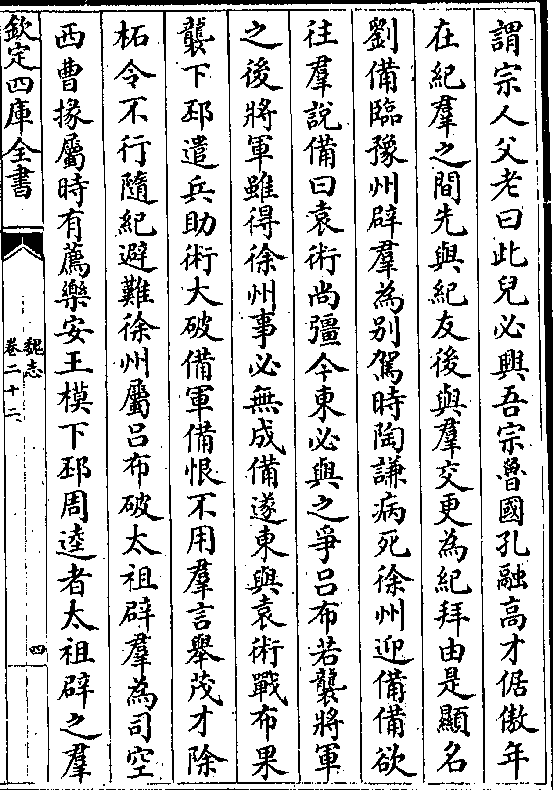 謂宗人父老曰此兒必興吾宗魯國孔融高才倨傲年
在紀羣之間先與紀友後與羣交更為紀拜由是顯名
劉備臨豫州辟羣為别駕時陶謙病死徐州迎備備欲
往羣說備曰袁術尚彊今東必與之爭吕布若襲將軍
之後將軍雖得徐州事必無成備遂東與袁術戰布果
襲下邳遣兵助術大破備軍備恨不用羣言舉茂才除
柘令不行隨紀避難徐州屬吕布破太祖辟羣為司空
西曹掾屬時有薦樂安王模下邳周逵者太祖辟之羣
欽定四庫全書
魏志
卷二十二
四